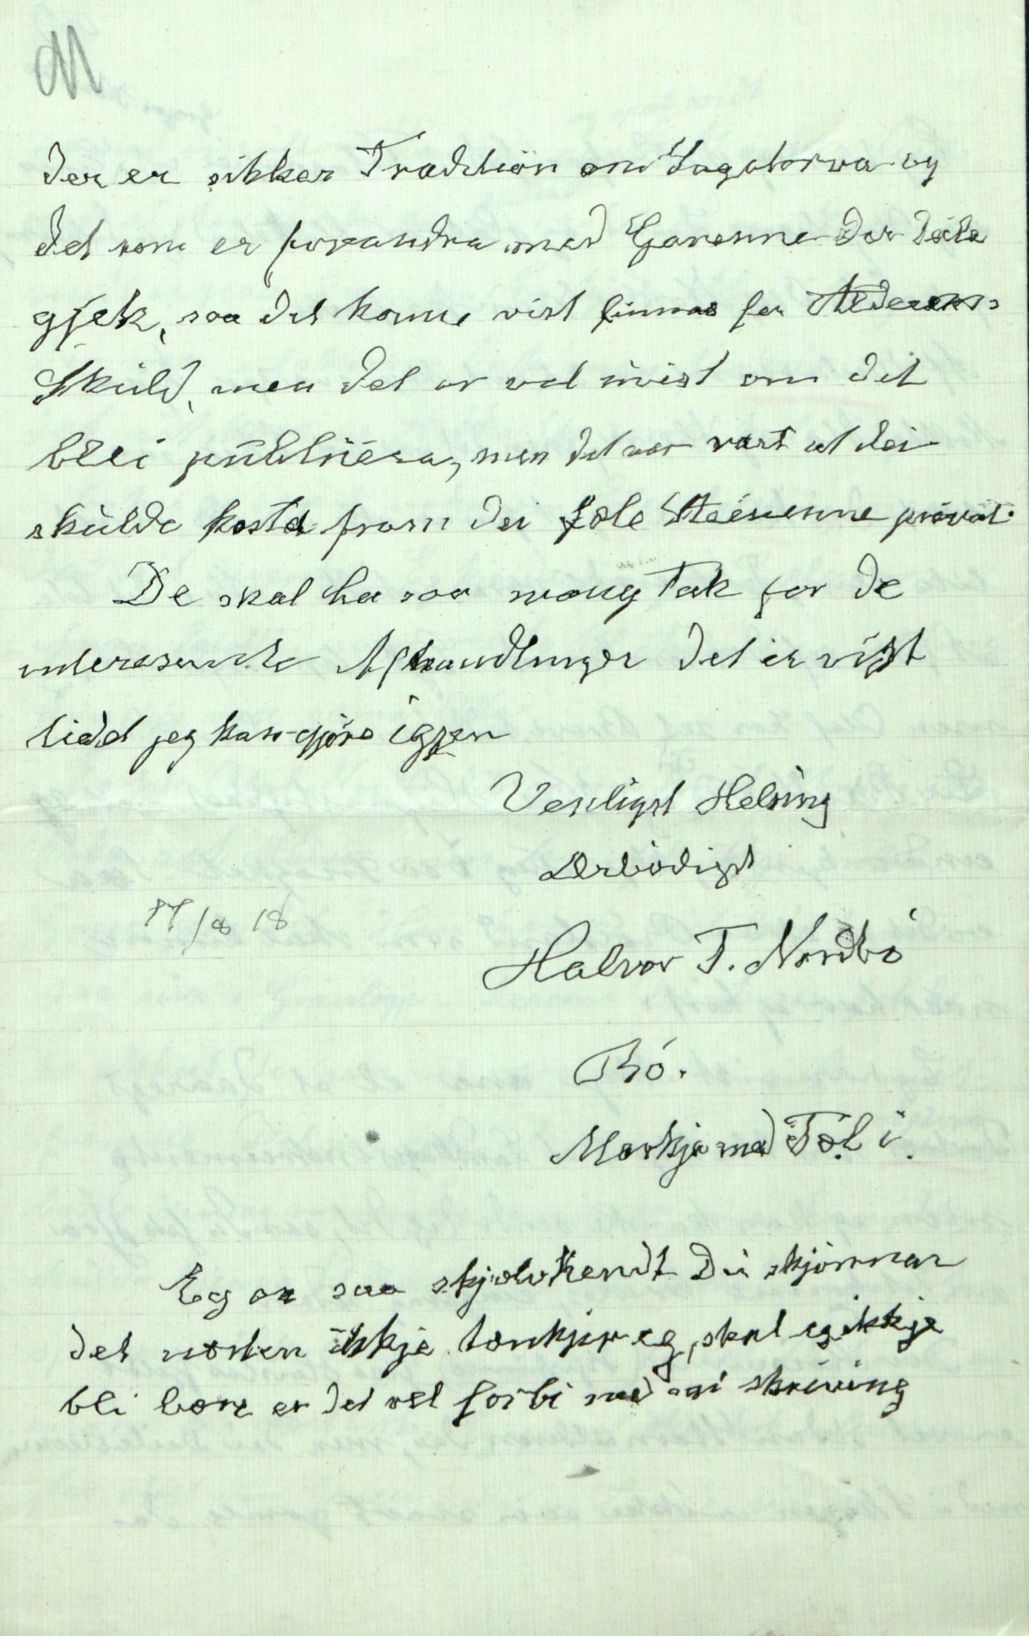 M
der er sikker Tradition om Sagatorva og
det som er forandra med Garenne der dele
gjek, saa det kunne vist finnas for Alderens
Skuld, men det er vel uvist om det
blei publisera, men det var vart at dei
skulde kosta fram dei fæle Steinenne privat.
De skal ha saa mang Tak for de
interesante Afhandlinger det er vist
lidet jeg kan gjøre igjen
Venligst Helsing
Ærbødigst
17/8 18
Halvor T. Nordbø
Bø.
Merkje med Tel i.
Eg er saa skjælvhendt Di skjønnar
det næsten ikkje tænkjer eg, skal eg ikkje
bli bære er det vel forbi med mi skriving